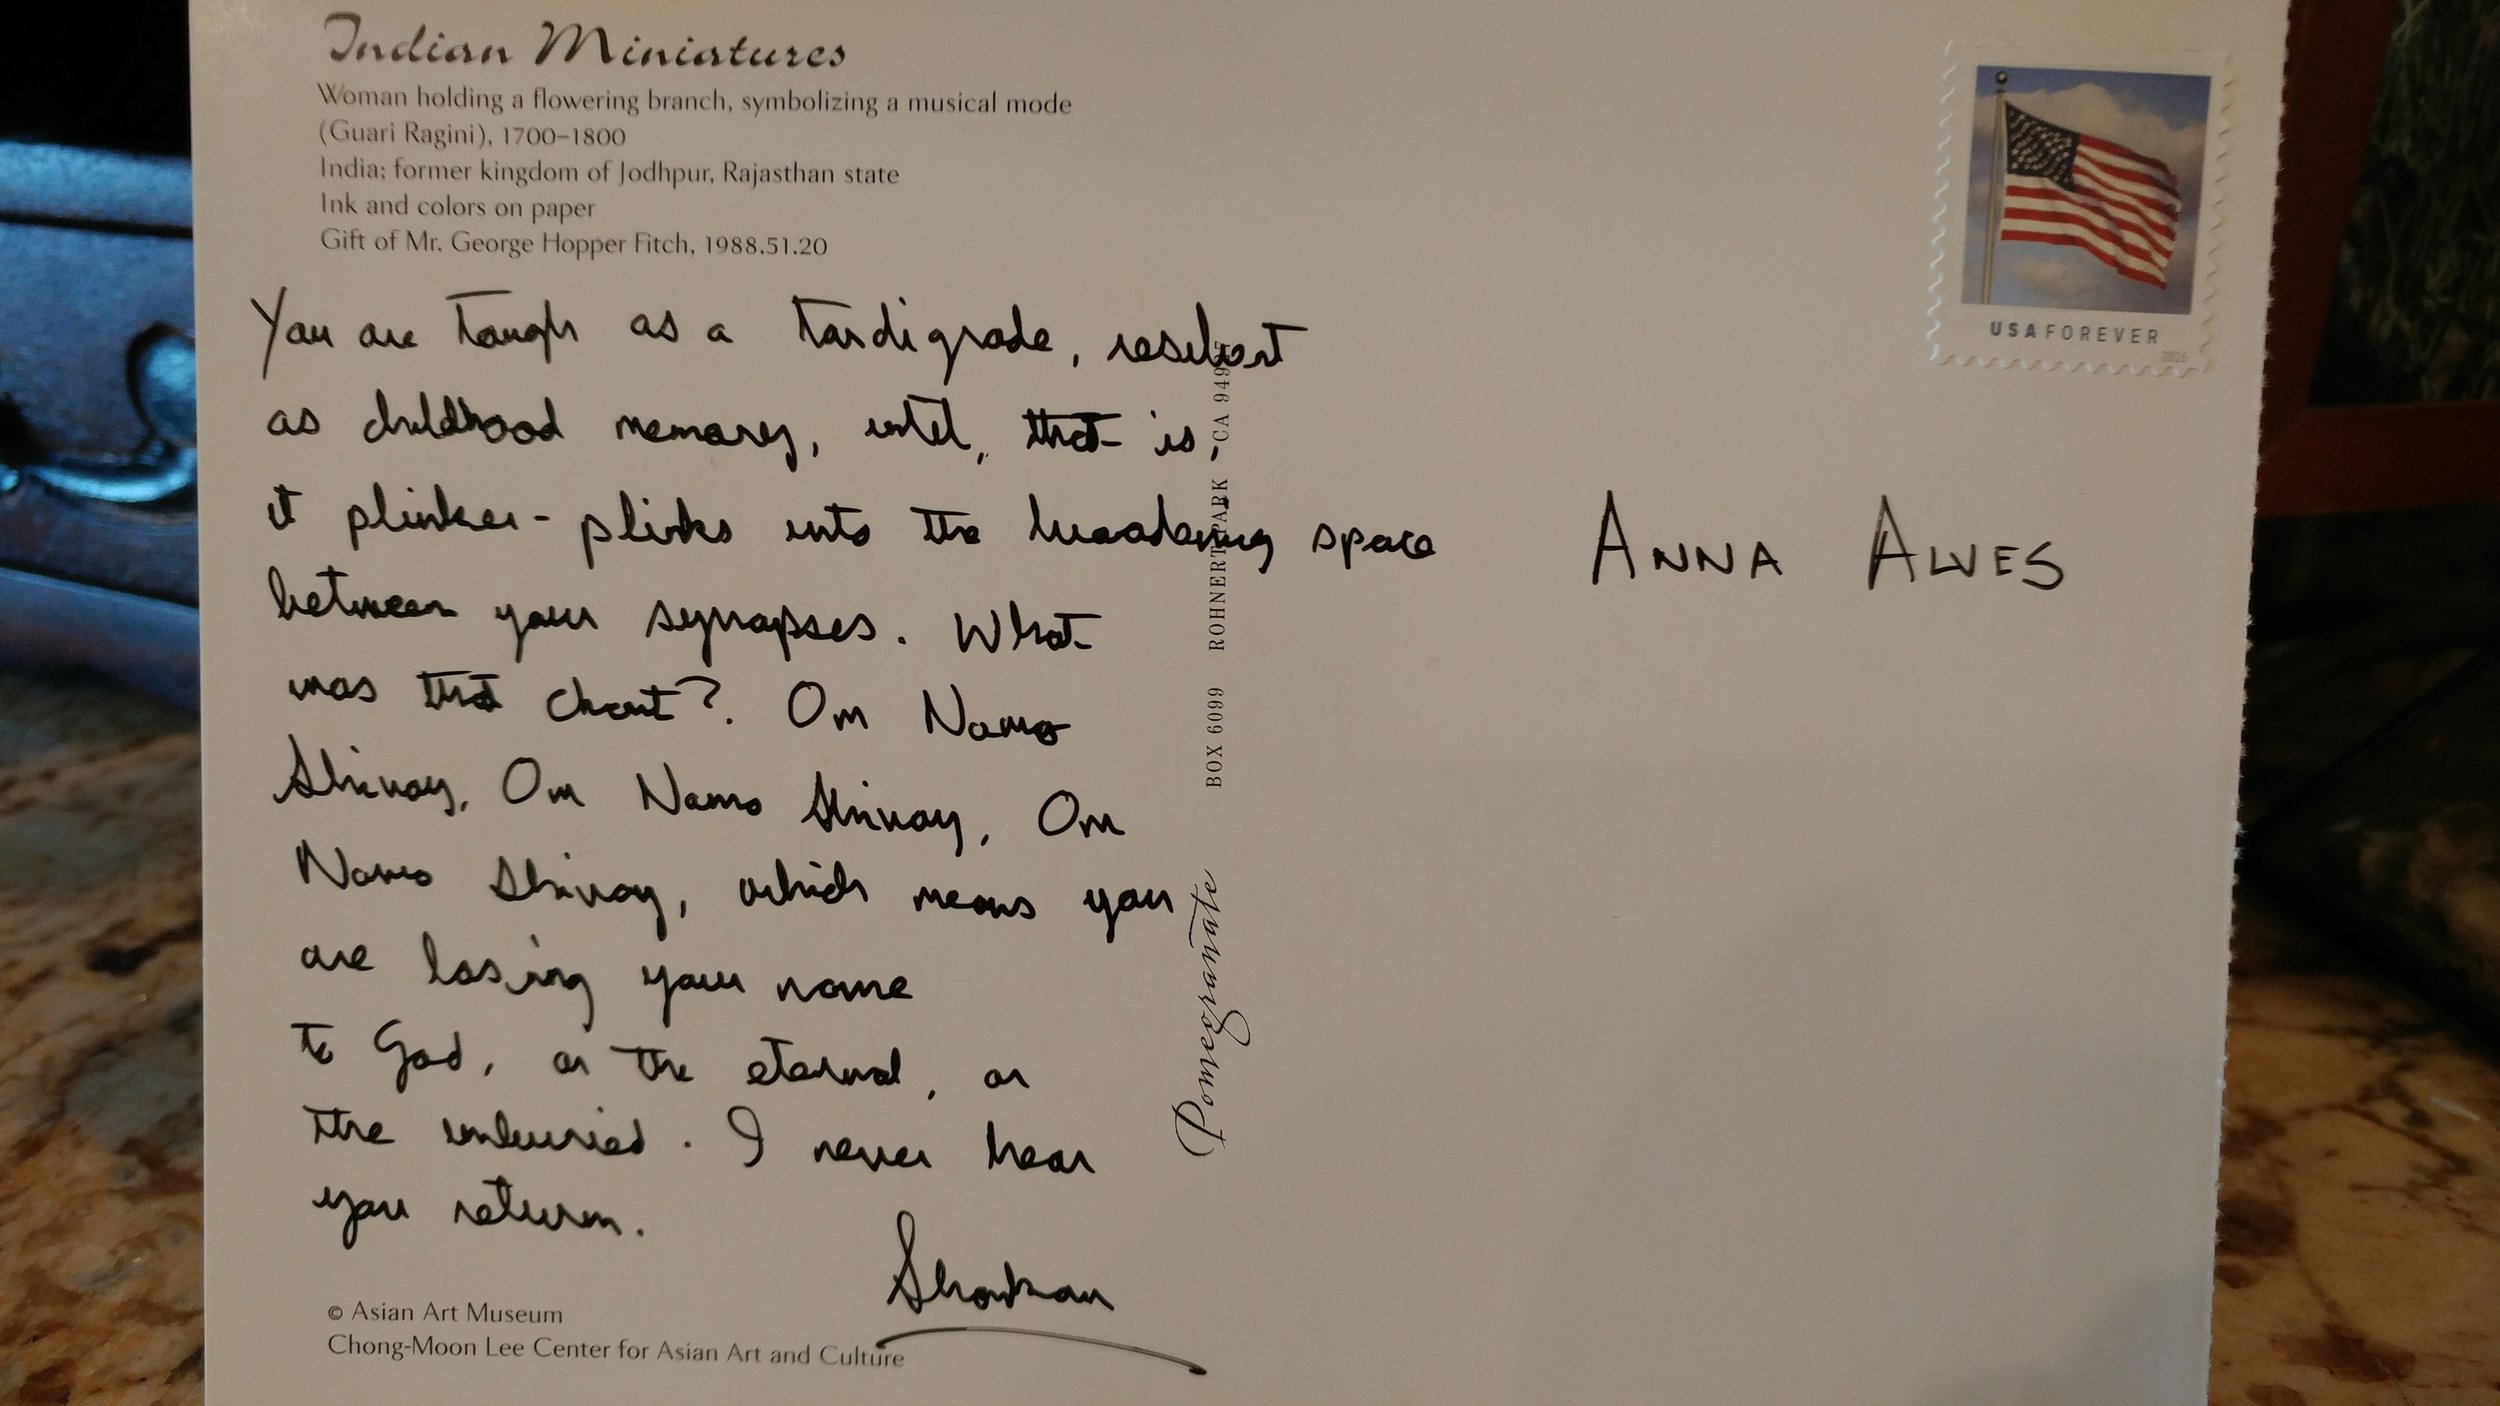 Indian Miniatures
Woman holding a flowering branch, symbolizing a musical mode
(Guari Ragini), 1700–1800
India; former kingdom of Jodhpur, Rajasthan state
Ink and colors on paper
Gift of Mr. George Hopper Fitch, 1988.51.20
You are tough as a tardigrade, resilient
as childhood memory, until, that is,
it plinker-plinks into the broadening space
between your synapses. What
was that chant?. Om Namo
Shivay, Om Namo Shivay, Om
Namo Shivay, which means you
are losing your name
to God, or the eternal, or
the unburied. I never hear
you return.
Shankar
© Asian Art Museum
Chong-Moon Lee Center for Asian Art and Culture
Pomegranate BOX 6099 ROHNERT PARK CA
USA FOREVER
2016
ANNA ALVES